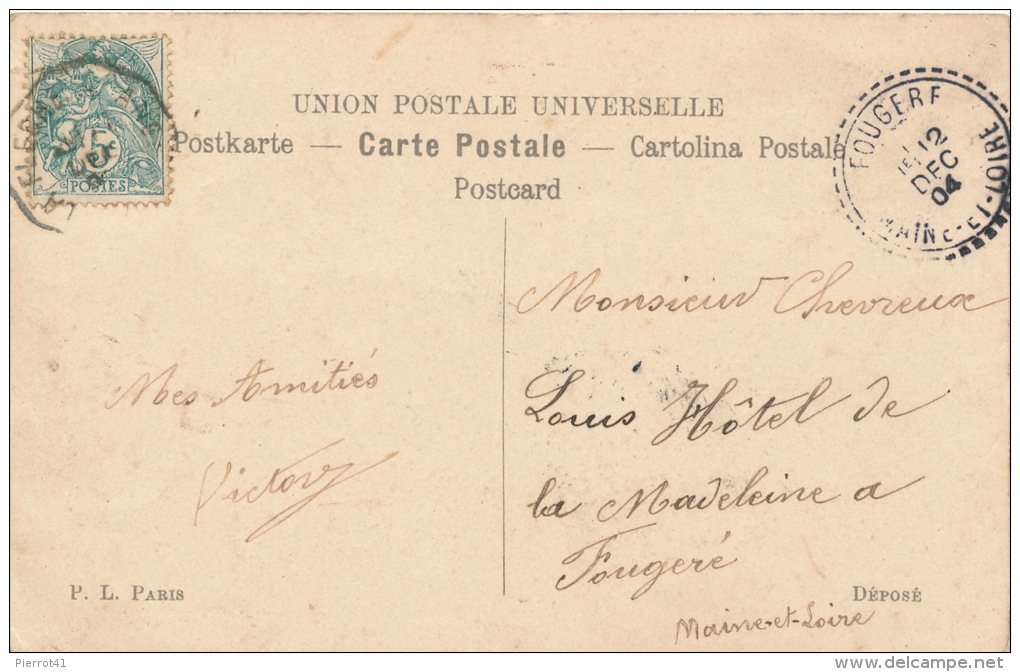 UNION POSTALE UNIVERSELLE
Postkarte — Carte Postale — Cartolina Postale
Postcard
5
POSTES
FOUGERE
12
DEC
04
MAINE-ET-LOIRE
Mes Amitiés
Victory
Monsieur Chevreux
Louis Hôtel de
la Madeleine a
Fougeré
Maine-et-Loire
P. L. PARIS
DÉPOSÉ
Pierrot41
www.delcampe.net